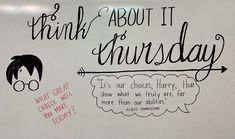 think ABOUT IT
thursday
WHAT GREAT
CHOICE WILL
YOU MAKE
TODAY?
"It's our choices, Harry, that
show what we truly are, far
more than our abilities."
ALBUS DUMBLEDORE